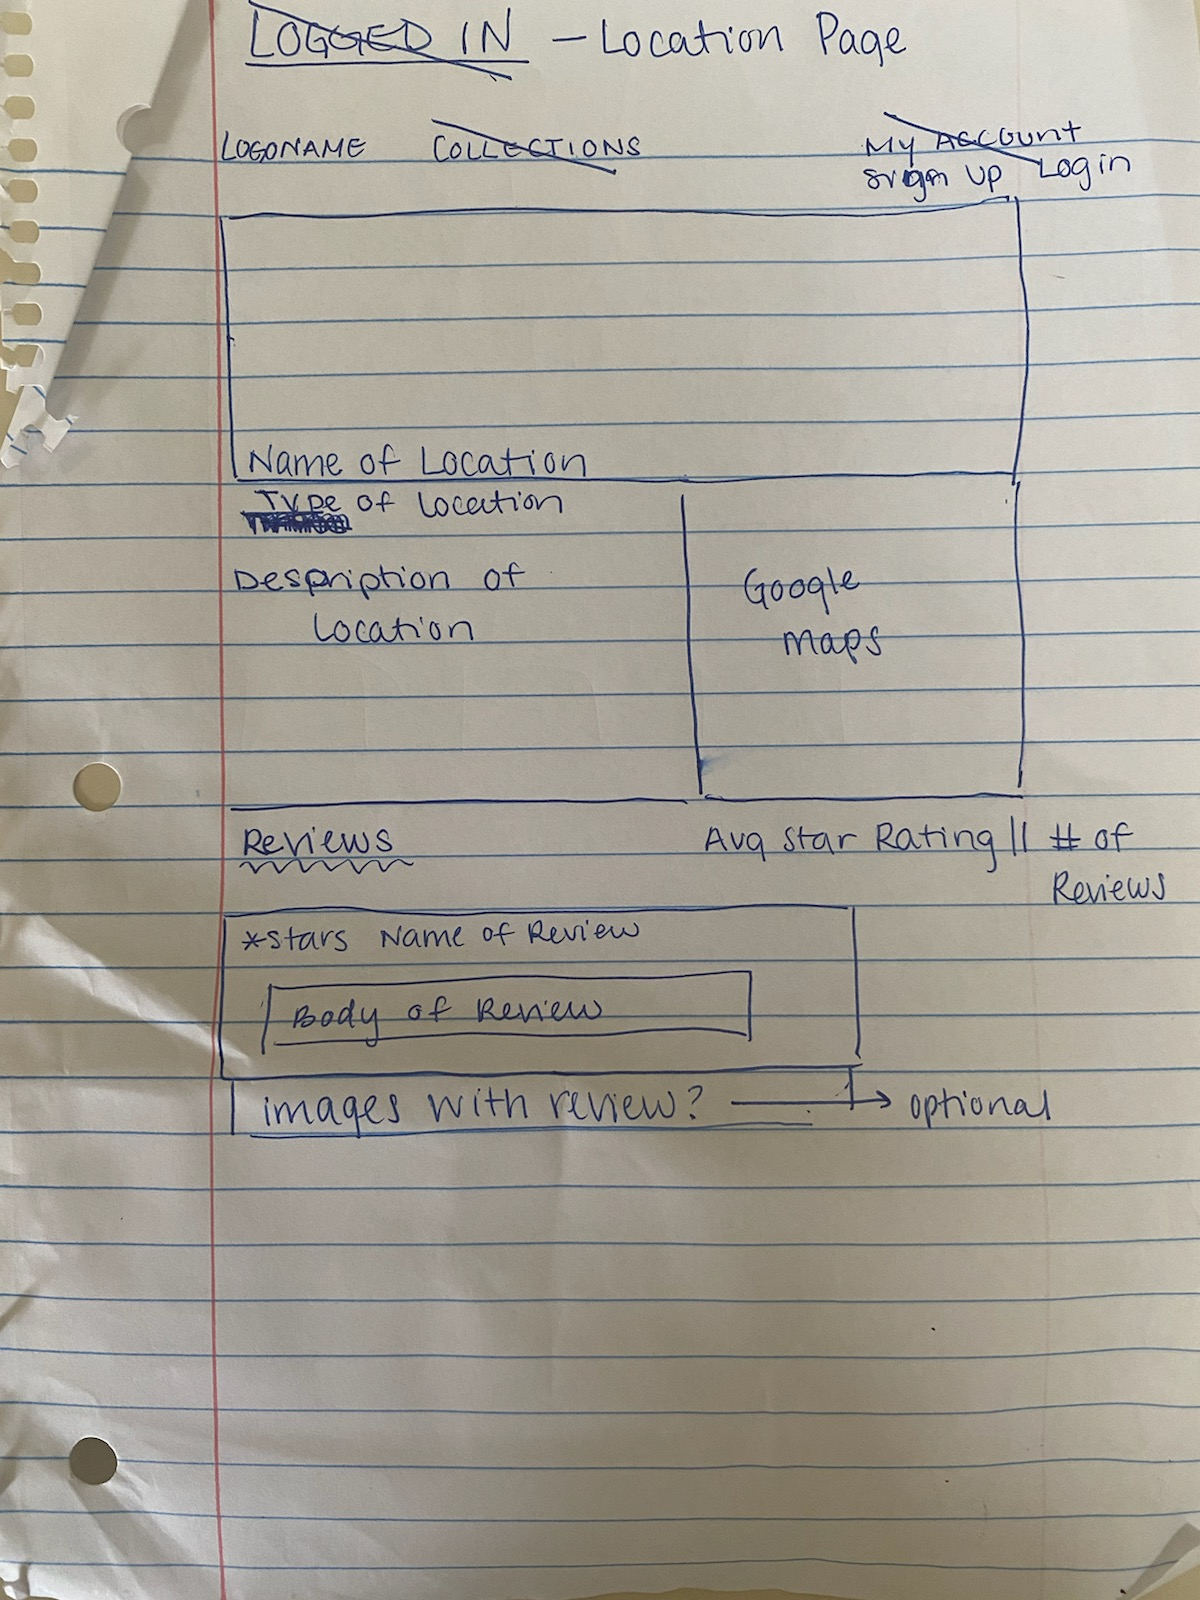 LOGGED IN - Location Page
LOGONAME COLLECTIONS My ACCOUNT
Sign Up Login
Name of Location
Type of Location
Description of
Location
Google
maps
Reviews Avg Star Rating || # of
Reviews
*stars Name of Review
Body of Review
images with review? → optional